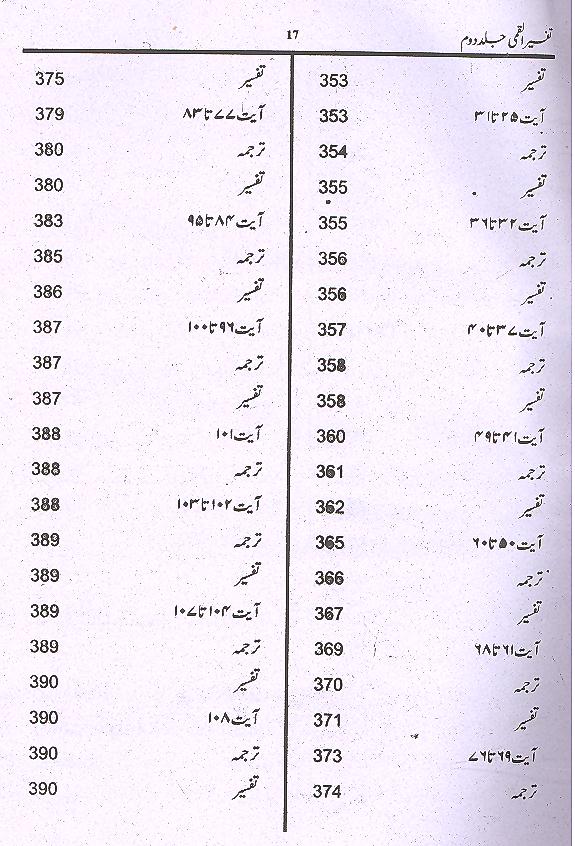 تفسیر القمی جلد دوم
17
تفسیر 353
آیت ۲۵ تا ۳۱ 353
ترجمہ 354
تفسیر 355
آیت ۳۲ تا ۳۶ 355
ترجمہ 356
تفسیر 356
آیت ۳۷ تا ۴۰ 357
ترجمہ 358
تفسیر 358
آیت ۴۱ تا ۴۹ 360
ترجمہ 361
تفسیر 362
آیت ۵۰ تا ۶۰ 365
ترجمہ 366
تفسیر 367
آیت ۶۱ تا ۶۸ 369
ترجمہ 370
تفسیر 371
آیت ۶۹ تا ۷۶ 373
ترجمہ 374
تفسیر 375
آیت ۷۷ تا ۸۳ 379
ترجمہ 380
تفسیر 380
آیت ۸۴ تا ۹۵ 383
ترجمہ 385
تفسیر 386
آیت ۹۶ تا ۱۰۰ 387
ترجمہ 387
تفسیر 387
آیت ۱۰۱ 388
ترجمہ 388
آیت ۱۰۲ تا ۱۰۳ 388
ترجمہ 389
تفسیر 389
آیت ۱۰۴ تا ۱۰۷ 389
ترجمہ 389
تفسیر 390
آیت ۱۰۸ 390
ترجمہ 390
تفسیر 390